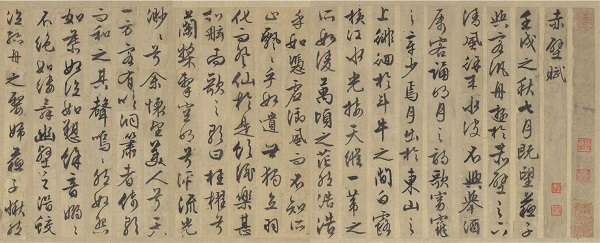 赤壁賦
壬戌之秋七月既望蘇子
與客汎舟遊於赤壁之下
清風徐來水波不興舉酒
屬客誦明月之詩歌窈窕
之章少焉月出於東山之
上徘徊於斗牛之間白露
橫江水光接天縱一葦之
所如凌萬頃之茫然浩浩
乎如憑虛御風而不知所
止飄飄乎如遺世獨立羽
化而登仙於是飲酒樂甚
扣舷而歌之歌曰桂櫂兮
蘭槳擊空明兮泝流光
渺渺兮余懷望美人兮天
一方客有吹洞簫者倚歌
而和之其聲嗚嗚然如怨
如慕如泣如訴餘音嫋嫋
不絕如縷舞幽壑之潛蛟
泣孤舟之嫠婦蘇子愀然